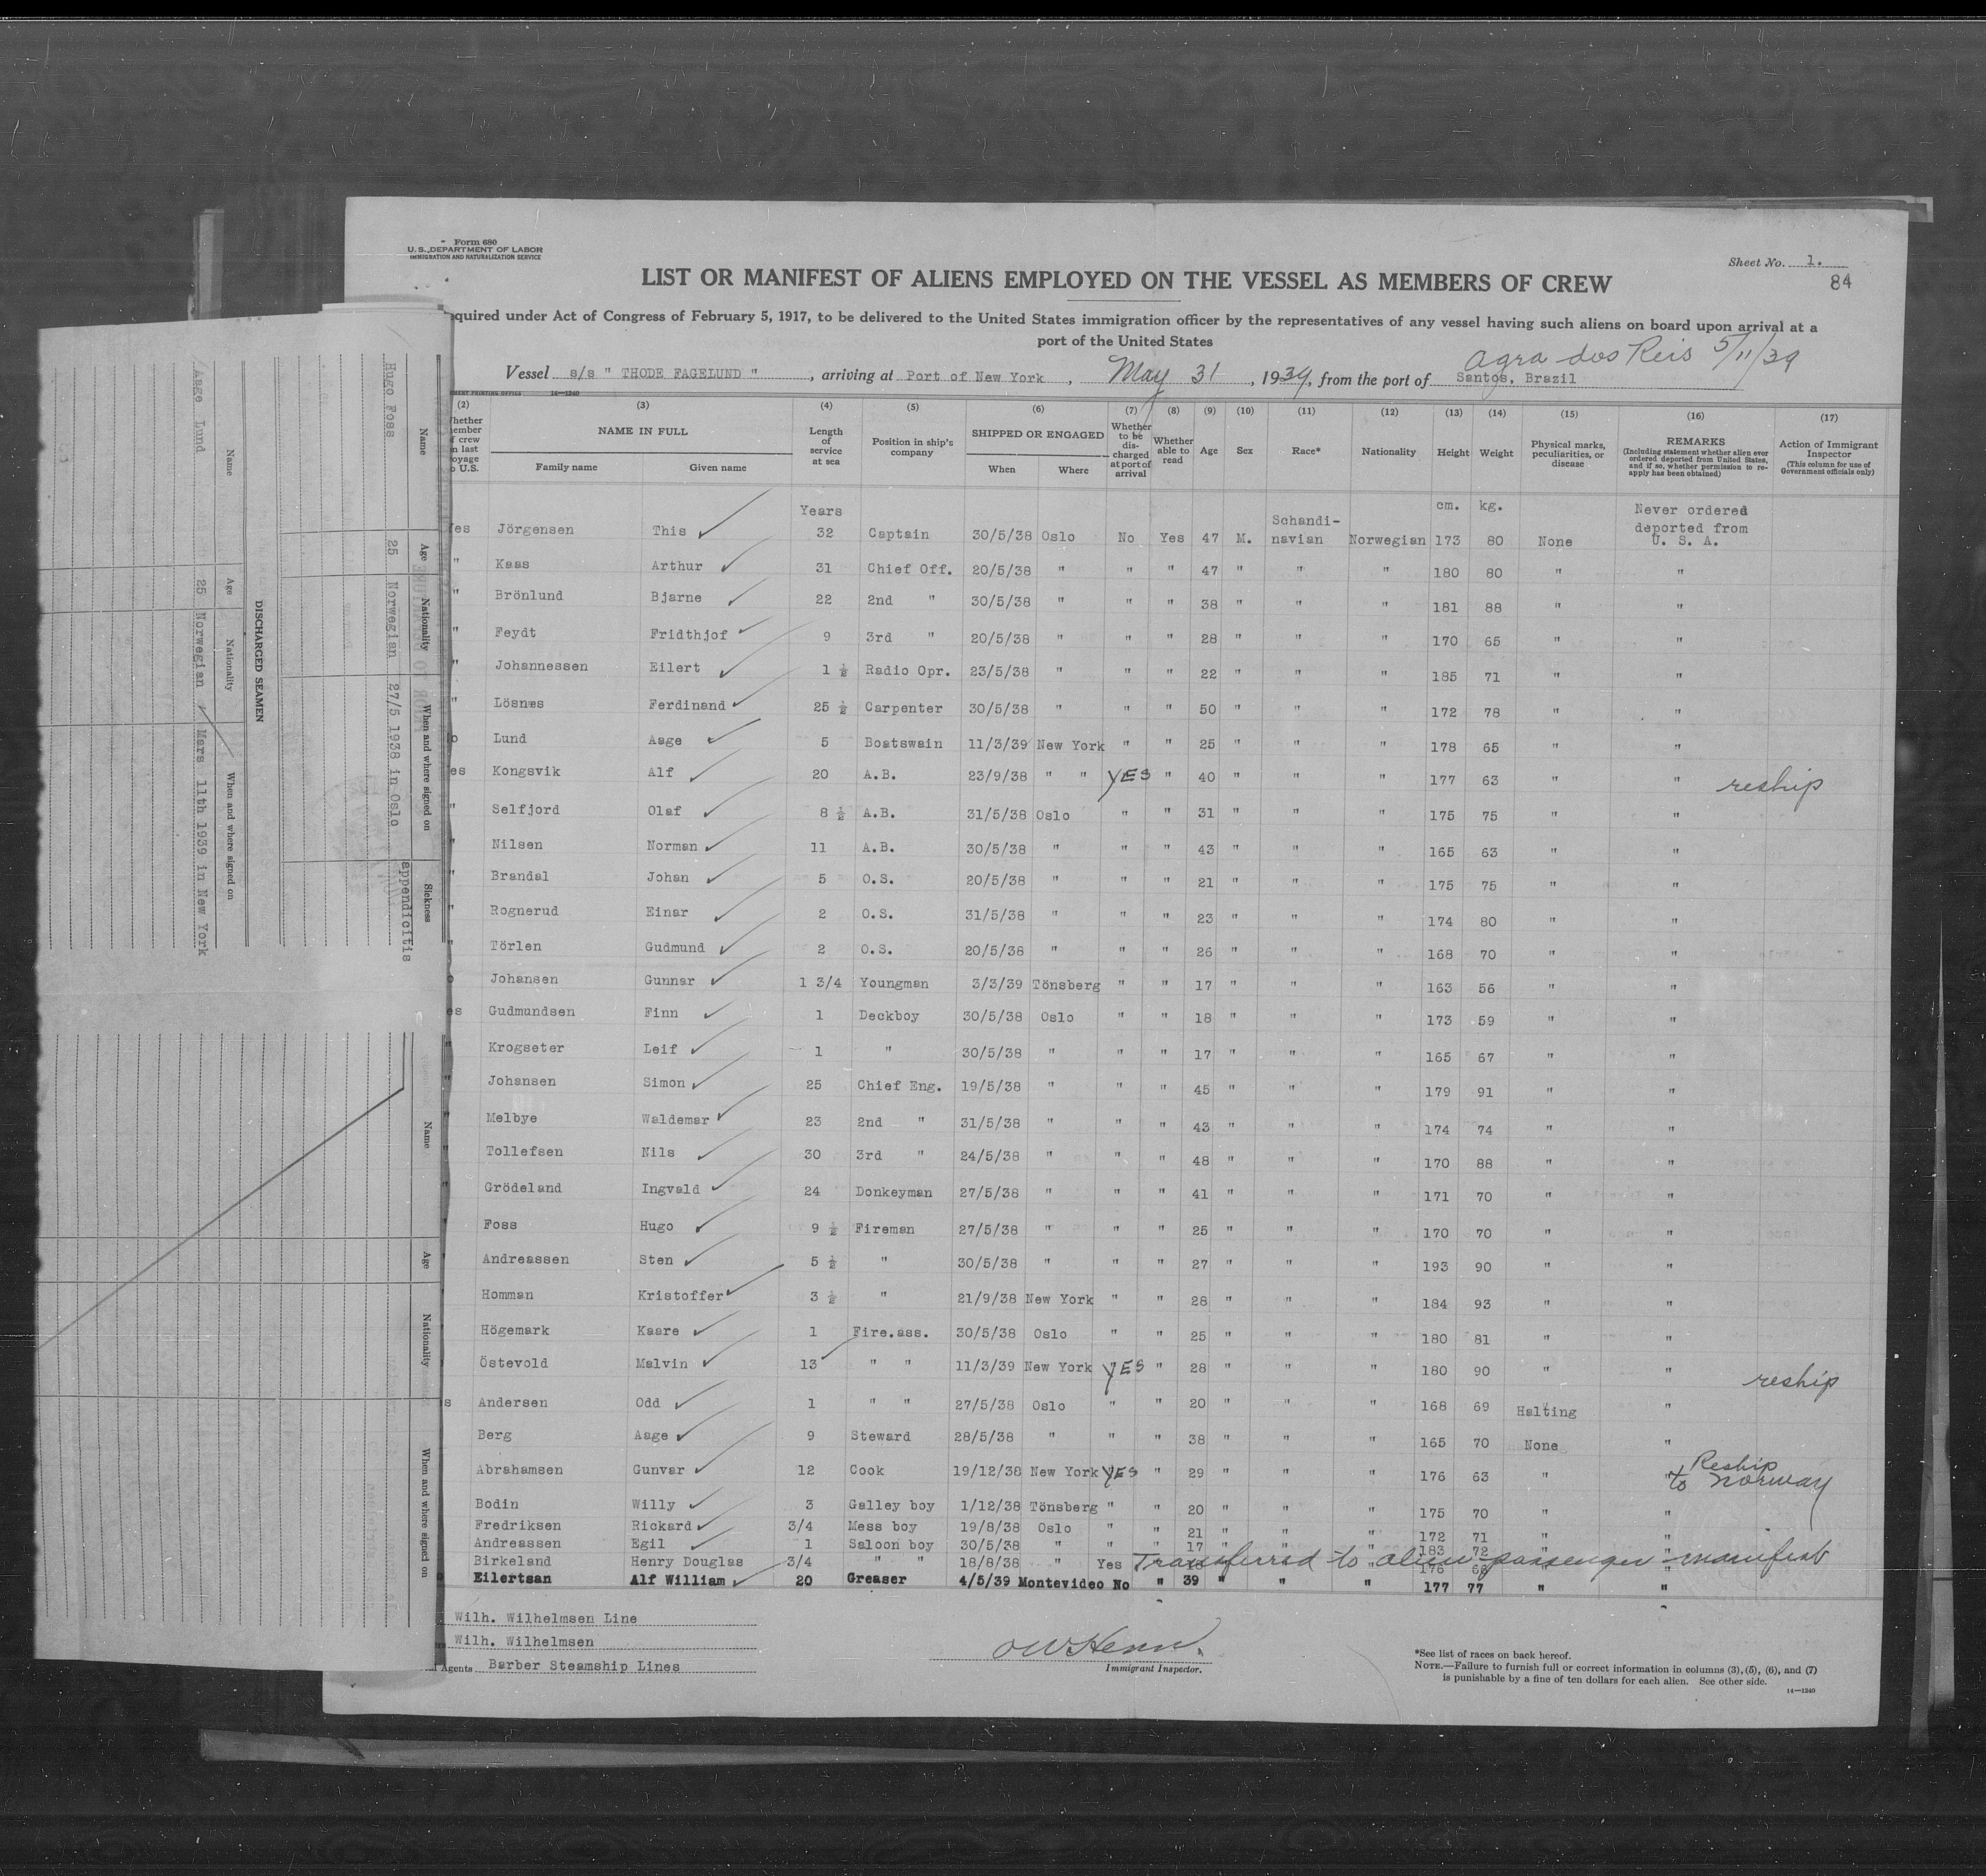 Form 680
U. S. DEPARTMENT OF LABOR
IMMIGRATION AND NATURALIZATION SERVICE
Sheet No. 1.
84
LIST OR MANIFEST OF ALIENS EMPLOYED ON THE VESSEL AS MEMBERS OF CREW
equired under Act of Congress of February 5, 1917, to be delivered to the United States immigration officer by the representatives of any vessel having such aliens on board upon arrival at a
port of the United States
Agra dos Reis 5/11/39
Vessel s/s " THODE FAGELUND ", arriving at Port of New York, May 31, 1939, from the port of Santos, Brazil
14—1240
(2) (3) (4) (5) (6) (7) (8) (9) (10) (11) (12) (13) (14) (15) (16) (17)
NAME IN FULL Family name Given name Length of service at sea Position in ship's company SHIPPED OR ENGAGED When Where Whether to be discharged at port of arrival Whether able to read Age Sex Race* Nationality Height Weight Physical marks, peculiarities, or disease REMARKS (Including statement whether alien ever ordered deported from United States, and if so, whether permission to reapply has been obtained) Action of Immigrant Inspector (This column for use of Government officials only)
Years cm. kg. Never ordered deported from U. S. A.
es Jörgensen This 32 Captain 30/5/38 Oslo No Yes 47 M. Schandi-navian Norwegian 173 80 None
" Kaas Arthur 31 Chief Off. 20/5/38 " " " 47 " " " 180 80 " "
" Brönlund Bjarne 22 2nd " 30/5/38 " " " 38 " " " 181 88 " "
" Feydt Fridthjof 9 3rd " 20/5/38 " " " 28 " " " 170 65 " "
" Johannessen Eilert 1 ½ Radio Opr. 23/5/38 " " " 22 " " " 185 71 " "
" Lösnes Ferdinand 25 ½ Carpenter 30/5/38 " " " 50 " " " 172 78 " "
o Lund Aage 5 Boatswain 11/3/39 New York " " 25 " " " 178 65 " "
es Kongsvik Alf 20 A.B. 23/9/38 " " YES " 40 " " " 177 63 " " reship
" Selfjord Olaf 8 ½ A.B. 31/5/38 Oslo " " 31 " " " 175 75 " "
" Nilsen Norman 11 A.B. 30/5/38 " " " 43 " " " 165 63 " "
" Brandal Johan 5 O.S. 20/5/38 " " " 21 " " " 175 75 " "
" Rognerud Einar 2 O.S. 31/5/38 " " " 23 " " " 174 80 " "
" Törlen Gudmund 2 O.S. 20/5/38 " " " 26 " " " 168 70 " "
o Johansen Gunnar 1 3/4 Youngman 3/3/39 Tönsberg " " 17 " " " 163 56 " "
es Gudmundsen Finn 1 Deckboy 30/5/38 Oslo " " 18 " " " 173 59 " "
" Krogseter Leif 1 " 30/5/38 " " " 17 " " " 165 67 " "
" Johansen Simon 25 Chief Eng. 19/5/38 " " " 45 " " " 179 91 " "
" Melbye Waldemar 23 2nd " 31/5/38 " " " 43 " " " 174 74 " "
" Tollefsen Nils 30 3rd " 24/5/38 " " " 48 " " " 170 88 " "
" Grödeland Ingvald 24 Donkeyman 27/5/38 " " " 41 " " " 171 70 " "
" Foss Hugo 9 ½ Fireman 27/5/38 " " " 25 " " " 170 70 " "
" Andreassen Sten 5 ½ " 30/5/38 " " " 27 " " " 193 90 " "
Homman Kristoffer 3 ½ " 21/9/38 New York " " 28 " " " 184 93 " "
Högemark Kaare 1 Fire.ass. 30/5/38 Oslo " " 25 " " " 180 81 " "
Östevold Malvin 13 " " 11/3/39 New York YES " 28 " " " 180 90 " " reship
s Andersen Odd 1 " " 27/5/38 Oslo " " 20 " " " 168 69 Halting "
Berg Aage 9 Steward 28/5/38 " " " 38 " " " 165 70 None "
Abrahamsen Gunvar 12 Cook 19/12/38 New York YES " 29 " " " 176 63 " " Reship to Norway
Bodin Willy 3 Galley boy 1/12/38 Tönsberg " " 20 " " " 175 70 " "
Fredriksen Rickard 3/4 Mess boy 19/8/38 Oslo " " 21 " " " 172 71 " "
Andreassen Egil 1 Saloon boy 30/5/38 " " " 17 " " " 183 72 " "
Birkeland Henry Douglas 3/4 " " 18/8/38 " Yes Transferred to alien passenger manifest 176
Eilertsan Alf William 20 Greaser 4/5/39 Montevideo No " 39 " " " 177 77 " "
Wilh. Wilhelmsen Line
Wilh. Wilhelmsen
Agents Barber Steamship Lines
Immigrant Inspector.
*See list of races on back hereof.
NOTE.—Failure to furnish full or correct information in columns (3), (5), (6), and (7)
is punishable by a fine of ten dollars for each alien. See other side.
14—1240
Name Age Nationality When and where signed on Sickness
Hugo Foss 25 Norwegian 27/5 1938 in Oslo appendicitis
DISCHARGED SEAMEN
Name Age Nationality When and where signed on
Aage Lund 25 Norwegian Mars 11th 1939 in New York
Name Age Nationality When and where signed on